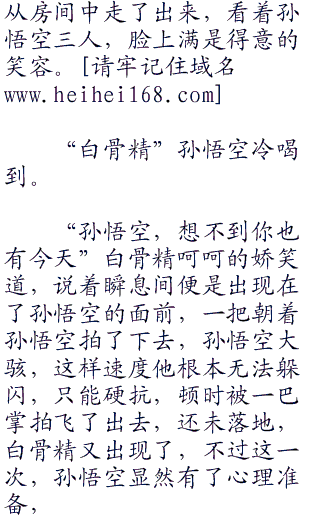 从房间中走了出来，看着孙
悟空三人，脸上满是得意的
笑容。[请牢记住域名
www.heihei168.com]
“白骨精”孙悟空冷喝
到。
“孙悟空，想不到你也
有今天”白骨精呵呵的娇笑
道，说着瞬息间便是出现在
了孙悟空的面前，一把朝着
孙悟空拍了下去，孙悟空大
骇，这样速度他根本无法躲
闪，只能硬抗，顿时被一巴
掌拍飞了出去，还未落地，
白骨精又出现了，不过这一
次，孙悟空显然有了心理准
备，